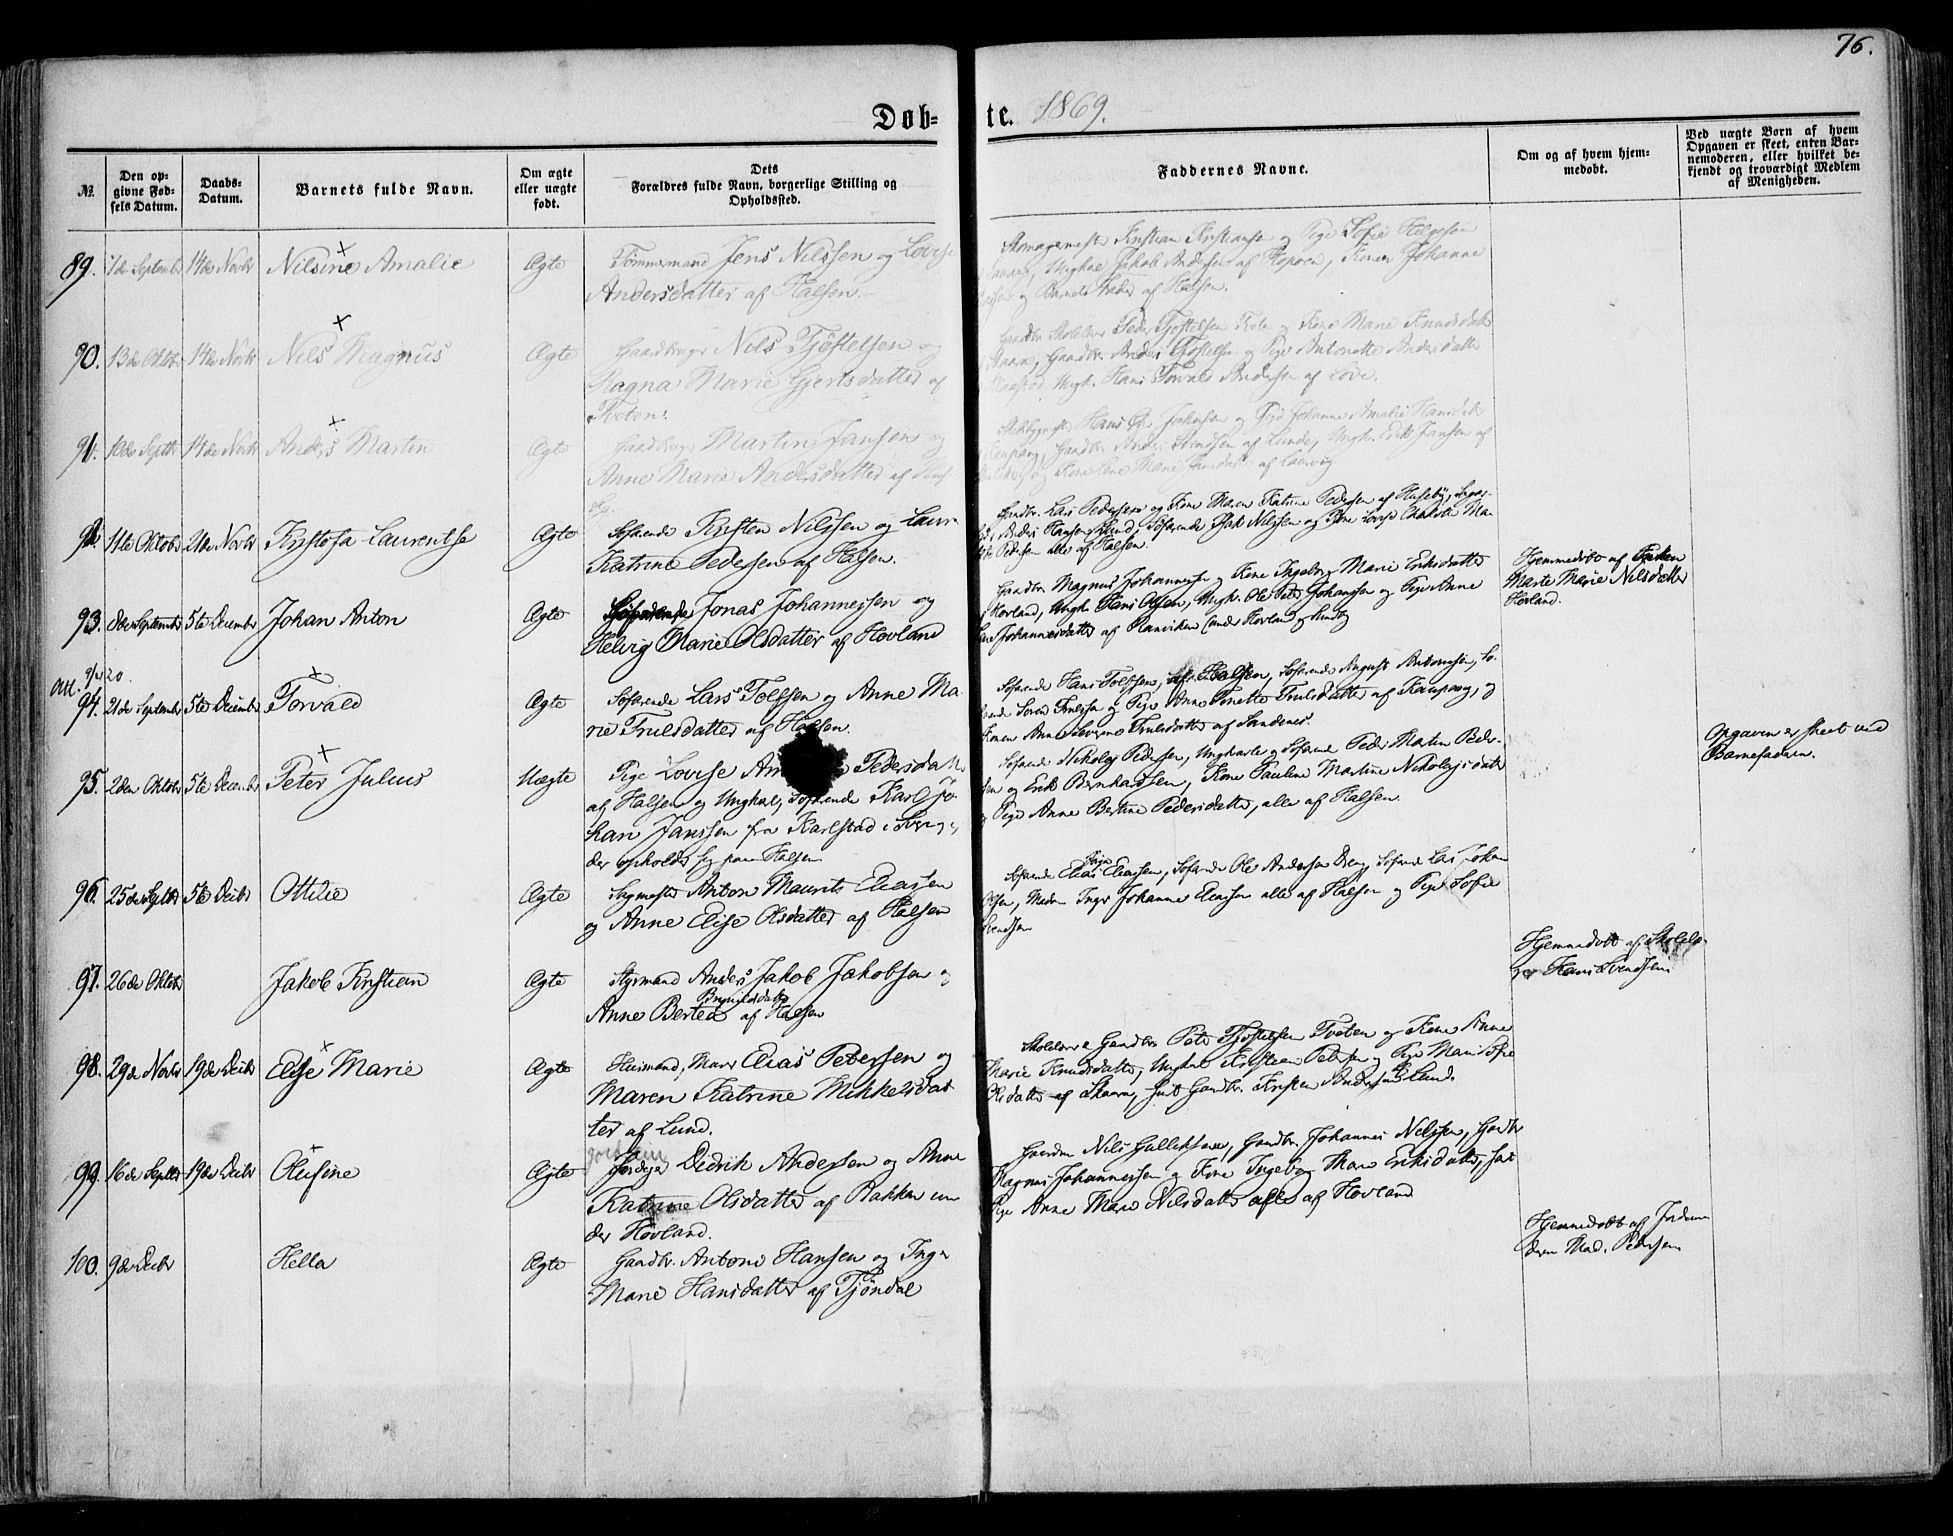 76.
Døb=
te. 1869.
№.
Den op-
givne Fød-
sels Datum.
Daabs-
Datum.
Barnets fulde Navn.
Om ægte
eller uægte
født.
Dets
Forældres fulde Navn, borgerlige Stilling og
Opholdssted.
Faddernes Navne.
Om og af hvem hjem-
medøbt.
Ved uægte Børn af hvem
Opgaven er skeet, enten Bar-
nemoderen, eller hvilket be-
kjendt og troværdigt Medlem
af Menigheden.
89. 7de Septembr 14de Novbr Nilsine Amalie Ægte Tømmermand Jens Nilssen og Lovise
Andersdatter af Halsen.
Kristian Kristiansen og Pige Sofie Helgesen
Ungkarl Jakob Andersen af Konen Johanne
og Barnets Fader af Halsen.
90. 13de Oktobr 14de Novbr Nils Magnus Ægte Gaardbruger Nils Tjøstelsen og
Ragna Marie Gjertsdatter af
Tveten.
Peder Tjøstelsen Tveten og Kone Marie Knudsdatter
Skaane, Gaardbr. Anders Tjøstelsen og Pige Antonette Andersdatter
Ungk. Hans Torvald Andersen af Løve.
91. 10de Septbr 14de Novbr Anders Martin Ægte Gaardbruger Martin Jansen og
Anne Marie Andersdatter af
Hans Chr. Jakobsen og Pige Johanne Amalie Hansdatter
Kaupang, Gaardbr. Anders Svendsen af Lunde, Ungk. Erik Jansen af
og Kone Lene Marie af Laurvig
92. 11te Oktobr 21de Novbr Kristofa Laurentse Ægte Søfarende Kristen Nilssen og Laura
Katrine Pedersen af Halsen.
Gaardbr. Lars Pedersen og Kone Maren Katrine Pedersen af Huseby,
Anders Hansen Lund, Søfarende Isak Nilssen og Pige Lovise Charlotte Ma-
Pedersen alle af Halsen.
93. 8de Septembr 5te December Johan Anton Ægte Jonas Johannessen og
Helvig Marie Olsdatter af Hovland
Gaardbr. Magnus Johannessen og Kone Ingeborg Marie Eriksdatter
Hovland, Ungk. Hans Olsen, Ungk. Ole Peter Johansen og Pige Anne
Johannesdatter af Ranviken under Hovland
Hjemmedøbt af
Marte Marie Nilsdatter
Hovland.
Att. 9/4 20.
94. 21de Septembr 5te Decembr Torvald Ægte Søfarende Lars Tolfsen og Anne Ma-
rie Trulsdatter af Halsen.
Søfarende Hans Tolfsen, af Halsen, Søfarende August Antonsen, Sø-
farende Søren Trulssen og Pige Anne Tonette Trulsdatter af Kaupang, og
Konen Anne Severine Trulsdatter af Sandenes.
95. 2den Oktobr 5te Decembr Peter Julius Uægte Pige Lovise Pedersdatter
af Halsen og Ungkarl, Søfarende Karl Jo-
han Janssen fra Karlstad i Sverige,
der opholder sig paa Halsen
Søfarende Nikolai Pedersen, Ungkarle og Søfarende Peder Martin Peder-
sen og Erik Bernhardsen, Kone Pauline Martine Nikolaisdatter
og Pige Anne Bertine Pedersdatter, alle af Halsen.
Opgaven er skeet ved
Barnefaderen.
96. 25de Septbr 5te Decbr Ottilie Ægte Anton Maurits Eliassen
og Anne Elise Olsdatter af Halsen
Søfarende Elias Eliassen, Søfarende Ole Andersen Søfarende Lars Johan
Olsen, Madm Inger Johanne Eliassen alle af Halsen og Pige Sofie
Svendsen
97. 26de Oktobr Jakob Kristian Ægte Styrmand Anders Jakob Jakobsen og
Anne Bertea Bryniusdatter af Halsen
Hjemmedøbt af Skolelæ-
rer Hans Svendsen
98. 29de Novbr 19de Decbr Elise Marie Ægte Husmand, Murer Elias Petersen og
Maren Katrine Mikkelsdat-
ter af Lund.
Skolelærer & Gaardbr. Peter Tjøstelsen Tveten og Kone Anne
Marie Knudsdatter, Ungkarl Kristian Petersen og Pige Maren Sofie
Olsdatter af Skaane, samt Gaardbr. Kristen Andersen Lund.
99. 16de Septbr 19de Decbr Olufine Ægte Didrik Andersen og Anne
Katrine Olsdatter af Bakken un-
der Hovland.
Gaardm Nils Gulliksen, Gaardbr. Johannes Nilssen, Gaardbr
Magnus Johannessen og Kone Ingeborg Marie Eriksdatter, samt
Pige Anne Marie Nilsdatter alle af Hovland
100. 9de Decbr Hella Ægte Gaardbr. Antoni Hansen og Inger
Marie Hansdatter af Tjøndal
Hjemmedøbt af Jordemo-
deren Mad. Pedersen